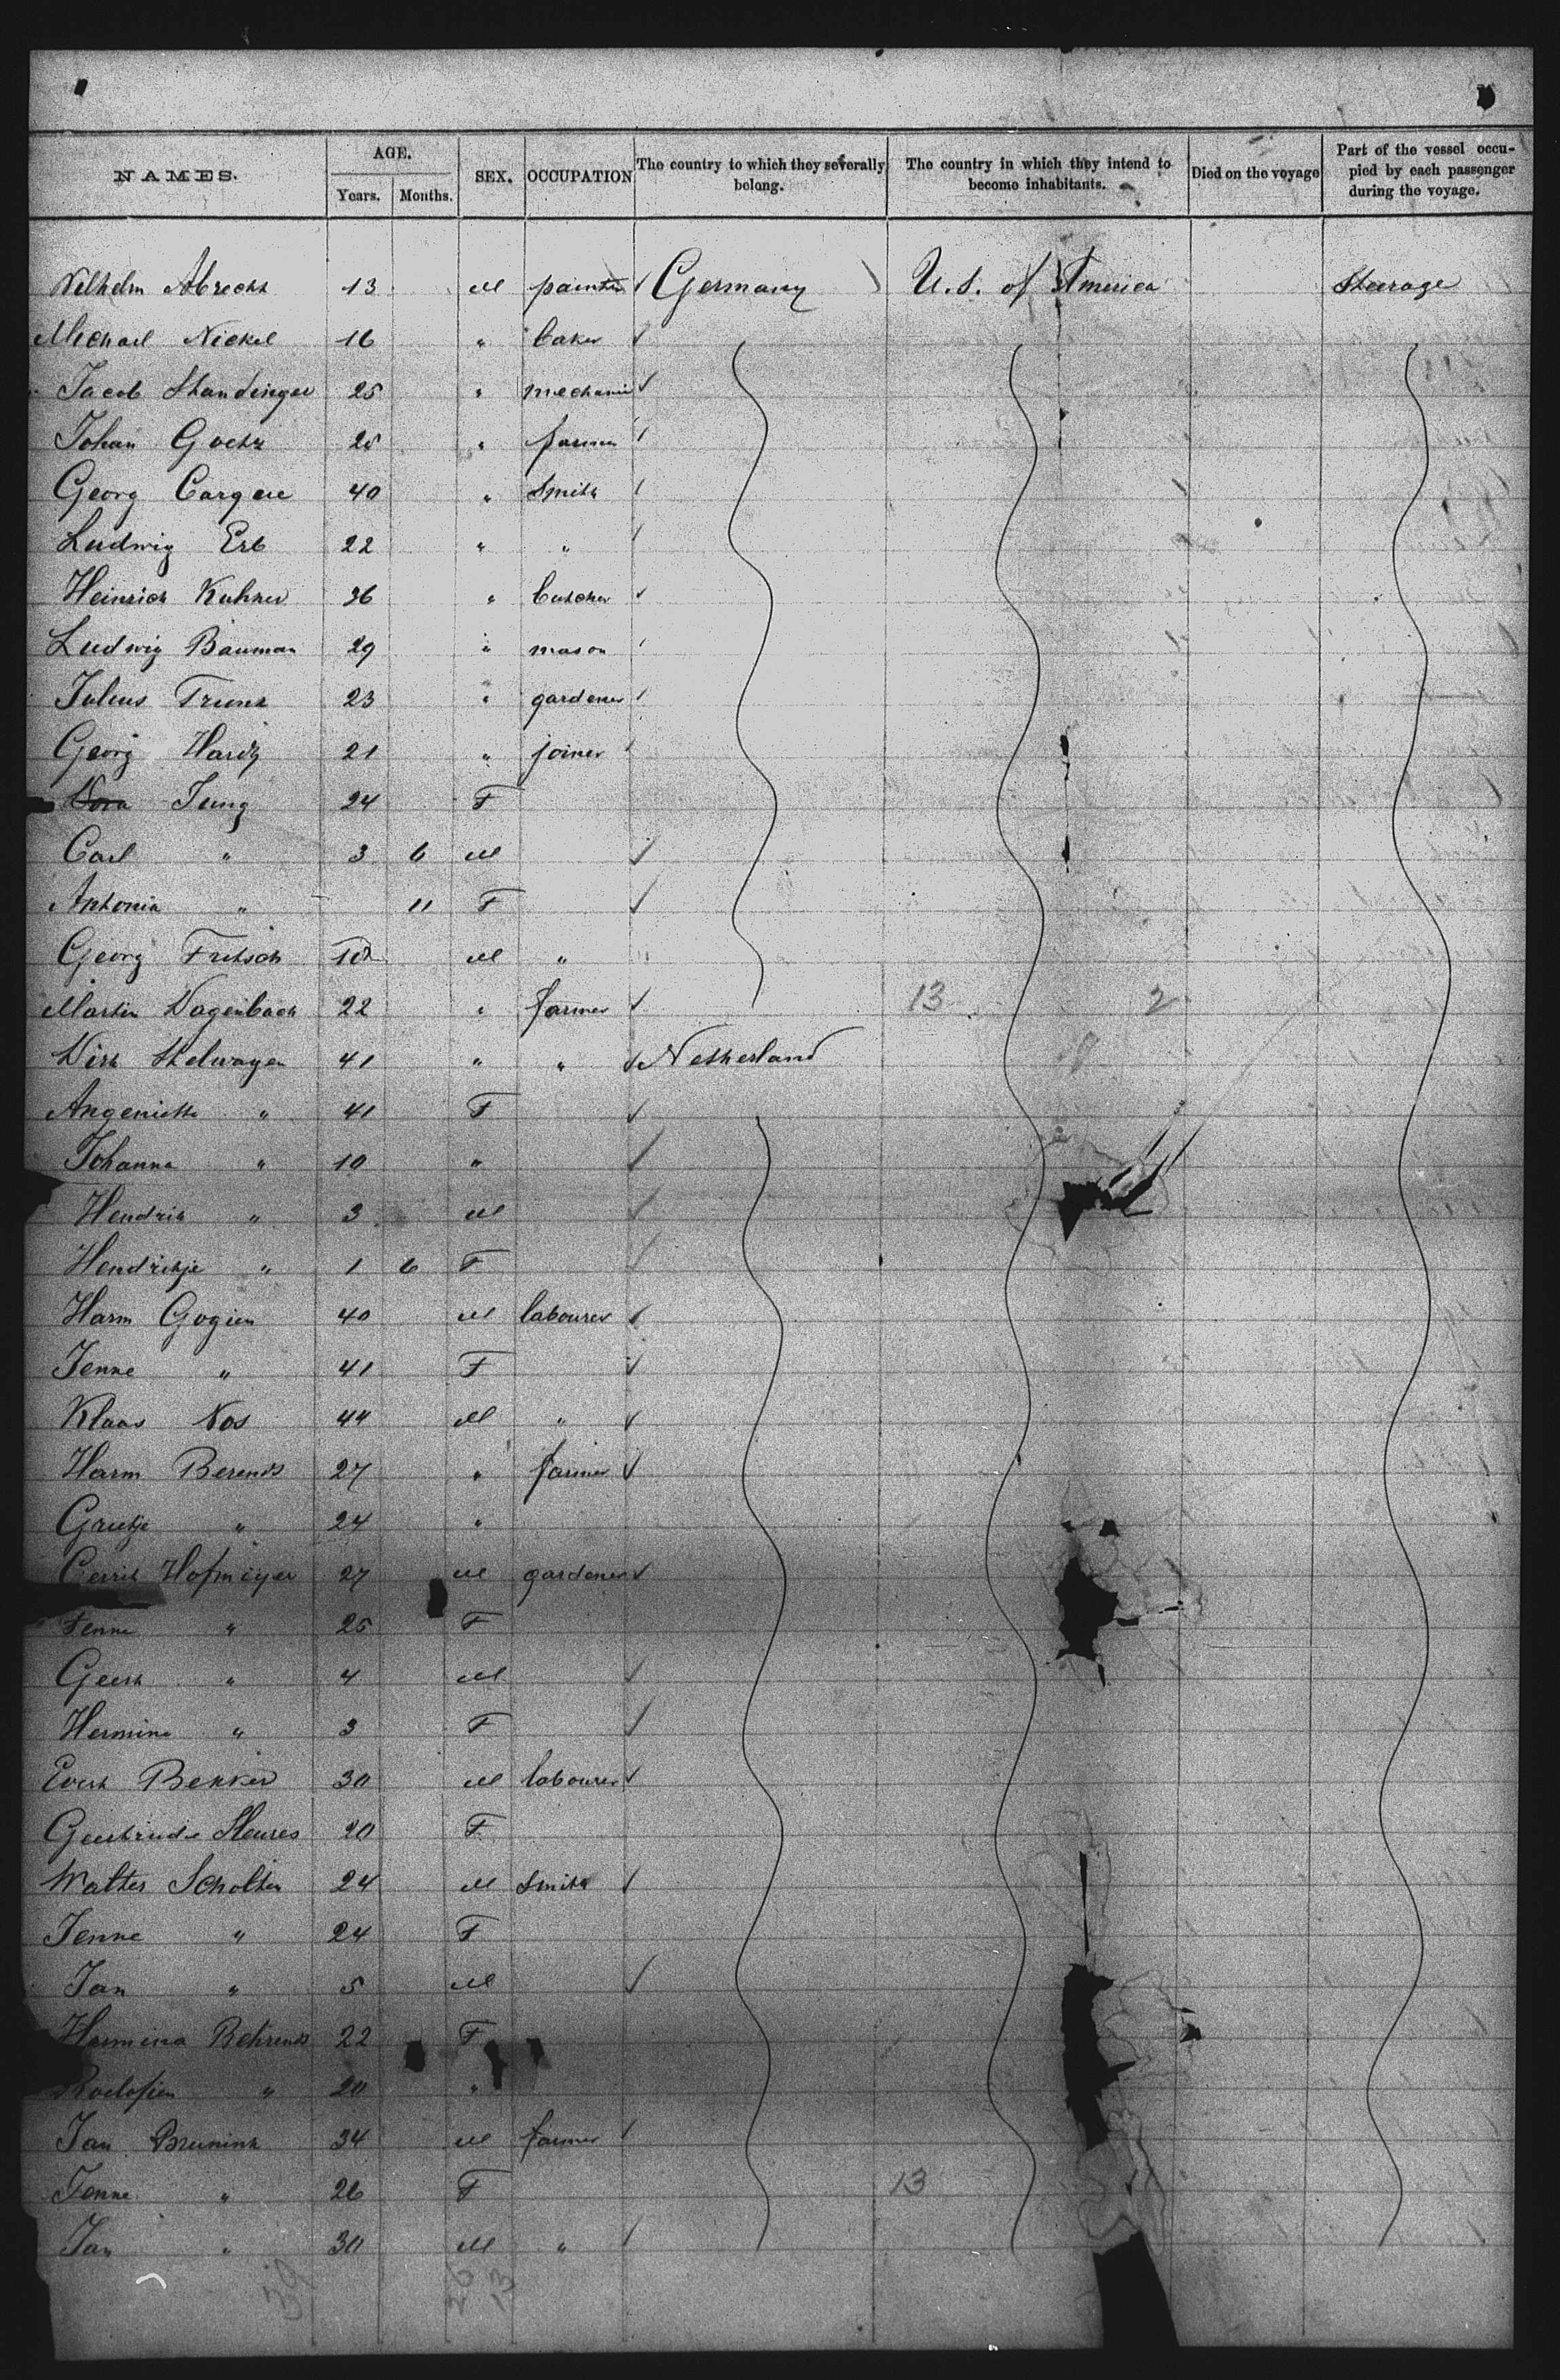 NAMES. AGE. Years. Months. SEX. OCCUPATION The country to which they severally belong. The country in which they intend to become inhabitants. Died on the voyage Part of the vessel occupied by each passenger during the voyage.
Wilhelm Abrecht 13 M painter Germany U.S. of America Steerage
Michael Nickel 16 " baker
Jacob Standinger 25 " mechanic
Johan Goetz 25 " farmer
Georg 40 " Smith
Ludwig Erb 22 " "
Heinrich Kuhner 36 " butcher
Ludwig Bauman 29 " mason
Julius Trunk 23 " gardener
Georg Hardy 21 " joiner
Jung 24 F
Carl " 3 6 M
Antonia " 11 F
Georg Fritsch M "
Martin Wagenbach 22 " farmer 13 2
Dirk Stelwagen 41 " " Netherland
Angenietta " 41 F
Johanna " 10 "
Hendrik " 3 M
Hendrikje " 1 6 F
Harm Gogien 40 M labourer
Jenne " 41 F
Klaas Vos 44 M "
Harm Berends 27 " farmer
Grietje " 24 "
Gerrit Hofmeijer 27 M gardener
Fenne " 25 F
Geert " 4 M
Hermine " 3 F
Evert Bekker 30 M labourer
Geertrude Steures 20 F
Walter Scholten 24 M Smith
Jenne " 24 F
Jan " 5 M
Harmina Behrends 22 F
Roelofien " 20 "
Jan Brunink 34 M farmer
Jenne " 26 F 13
Jan " 30 M "
39 26 13